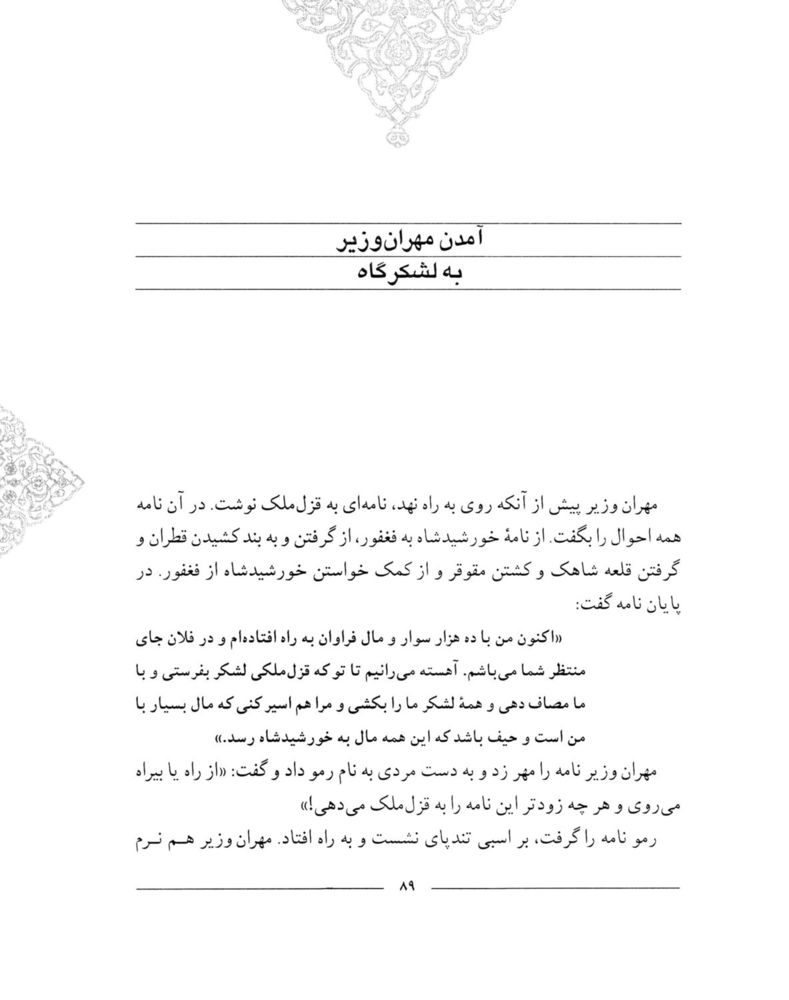 آمدن مهران‌وزیر
به لشکرگاه
مهران وزیر پیش از آنکه روی به راه نهد، نامه‌ای به قزل‌ملک نوشت. در آن نامه
همه احوال را بگفت. از نامهٔ خورشیدشاه به فغفور، از گرفتن و به بند کشیدن قطران و
گرفتن قلعه شاهک و کشتن مقوقر و از کمک خواستن خورشیدشاه از فغفور. در
پایان نامه گفت:
«اکنون من با ده هزار سوار و مال فراوان به راه افتاده‌ام و در فلان جای
منتظر شما می‌باشم. آهسته می‌رانیم تا تو که قزل‌ملکی لشکر بفرستی و با
ما مصاف دهی و همهٔ لشکر ما را بکشی و مرا هم اسیر کنی که مال بسیار با
من است و حیف باشد که این همه مال به خورشیدشاه رسد.»
مهران وزیر نامه را مهر زد و به دست مردی به نام رمو داد و گفت: «از راه یا بیراه
می‌روی و هر چه زودتر این نامه را به قزل‌ملک می‌دهی!»
رمو نامه را گرفت، بر اسبی تندپای نشست و به راه افتاد. مهران وزیر هم نرم
۸۹